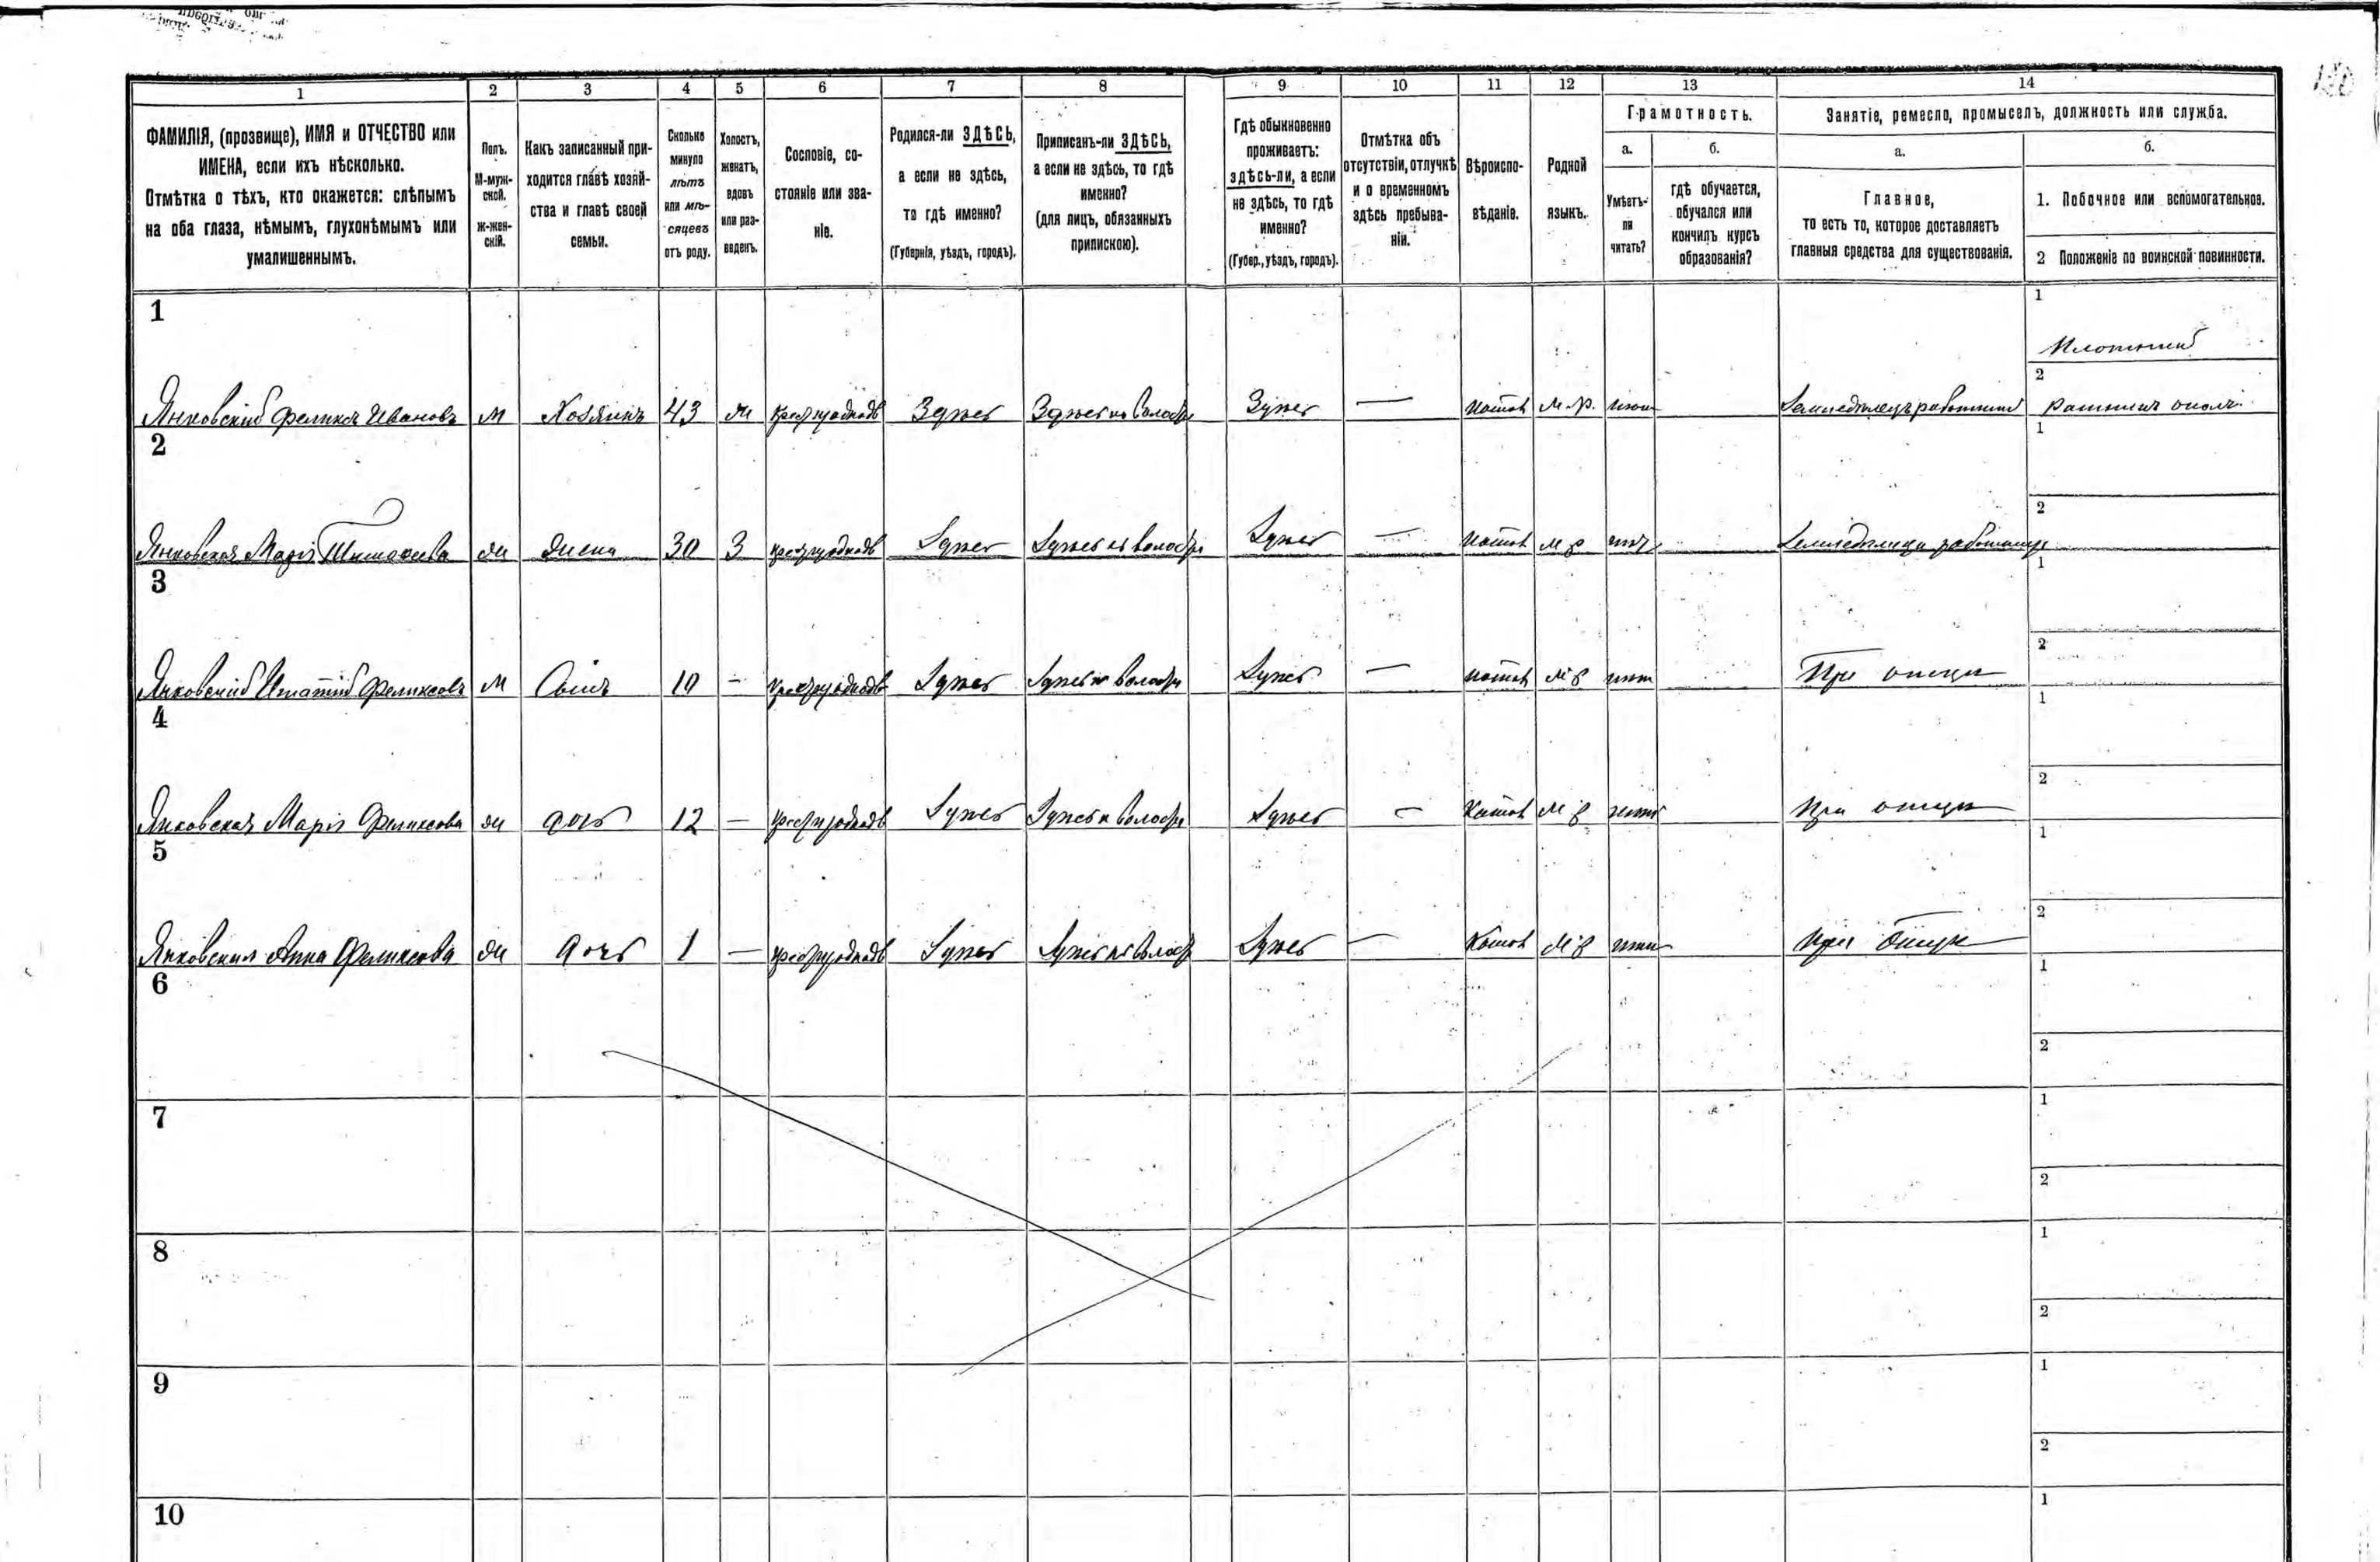 1 2 3 4 5 6 7 8 9 10 11 12 13 14
ФАМИЛІЯ, (прозвище), ИМЯ и ОТЧЕСТВО или
ИМЕНА, если ихъ нѣсколько.
Отмѣтка о тѣхъ, кто окажется: слѣпымъ
на оба глаза, нѣмымъ, глухонѣмымъ или
умалишеннымъ.
Полъ.
М-муж-
ской.
ж-жен-
скій.
Какъ записанный при-
ходится главѣ хозяй-
ства и главѣ своей
семьи.
Сколько
минуло
лѣтъ
или мѣ-
сяцевъ
отъ роду.
Холостъ,
женатъ,
вдовъ
или раз-
веденъ.
Сословіе, со-
стояніе или зва-
ніе.
Родился-ли ЗДѢСЬ,
а если не здѣсь,
то гдѣ именно?
(Губернія, уѣздъ, городъ).
Приписанъ-ли ЗДѢСЬ,
а если не здѣсь, то гдѣ
именно?
(для лицъ, обязанныхъ
припискою).
Гдѣ обыкновенно
проживаетъ:
здѣсь-ли, а если
не здѣсь, то гдѣ
именно?
(Губер., уѣздъ, городъ).
Отмѣтка объ
отсутствіи, отлучкѣ
и о временномъ
здѣсь пребыва-
ніи.
Вѣроиспо-
вѣданіе.
Родной
языкъ.
Грамотность.
а.
Умѣетъ-
ли
читать?
б.
гдѣ обучается,
обучался или
кончилъ курсъ
образованія?
Занятіе, ремесло, промыселъ, должность или служба.
а.
Главное,
то есть то, которое доставляетъ
главныя средства для существованія.
б.
1. Побочное или вспомогательное.
2 Положеніе по воинской повинности.
1
1
Плотникъ
2
Янковскій Феликсъ Ивановъ м Хозяинъ 43 ж Здѣсь Здѣсь Здѣсь — Катол М.р. Земледѣлецъ работникъ Ратникъ ополч.
2
1
2
Янковская Марія жена 30 З Здѣсь Здѣсь Здѣсь — Катол м р
3
1
2
Янковскій Игнатій Феликсовъ м Сынъ 10 — Здѣсь Здѣсь Здѣсь — Катол м р При отцѣ
4
1
2
Янковская Марія Феликсова ж дочь 12 — Здѣсь Здѣсь Здѣсь — Катол м р При отцѣ
5
1
2
Янковская Анна Феликсова ж дочь 1 — Здѣсь Здѣсь Здѣсь — Катол м р При отцѣ
6
1
2
7
1
2
8
1
2
9
1
2
10
1